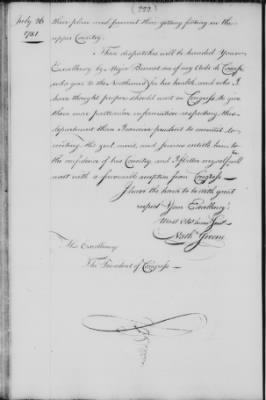 July 26
1781
their plan and prevent their getting footing in the
upper Country.
These dispatches will be handed Your
Excellency by Major Burnet one of my Aids de Camp
who goes to the Northward for his health, and who I
have thought proper should wait on Congress to give
them more particular information respecting this
department than I can venture to commit to
writing. His zeal, merit, and services entitle him to
the confidence of his Country and I flatter myself will
meet with a favourable reception from Congress—
I have the honor to be with great
respect Your Excellency's
Most Obt. hum Servt
Nath. Greene
His Excellency
The President of Congress—